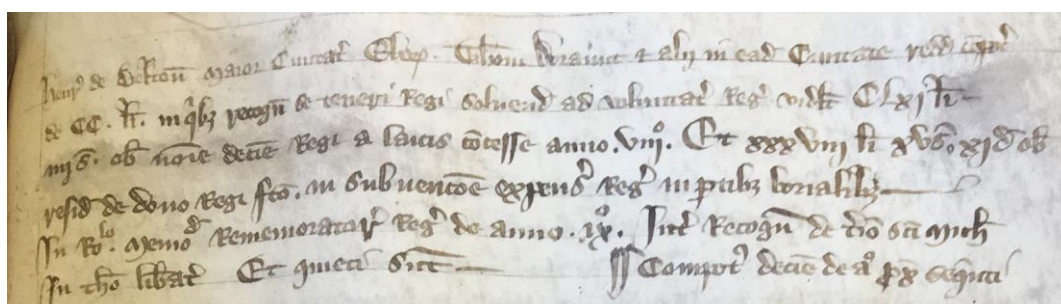 Henr' de Belton' Maior Civitat' Ebor. Thom' & alij in ead' Civitate redd' comp'
de CC. li. in q'b3 recogn' se teneri Regi solvend' ad voluntat' Reg' videl't CLXI li
iiij s. ob' no'ie decie' Regi a laicis co'cesse anno. viij°. Et xxxviij li xv s. xj d ob'
resid' de dono Regi f'c'o. in subvenco'e expens' Reg' in p'tib3 borialib3
In Ro'lo. Memo'd' Rememorator' Reg' de anno. ix°. Int' Recogn' de t'io s'ci Mich'
In th'o lib'at' Et quieti sunt ¶ Compot' decie' de a° p'x' sequ'ti